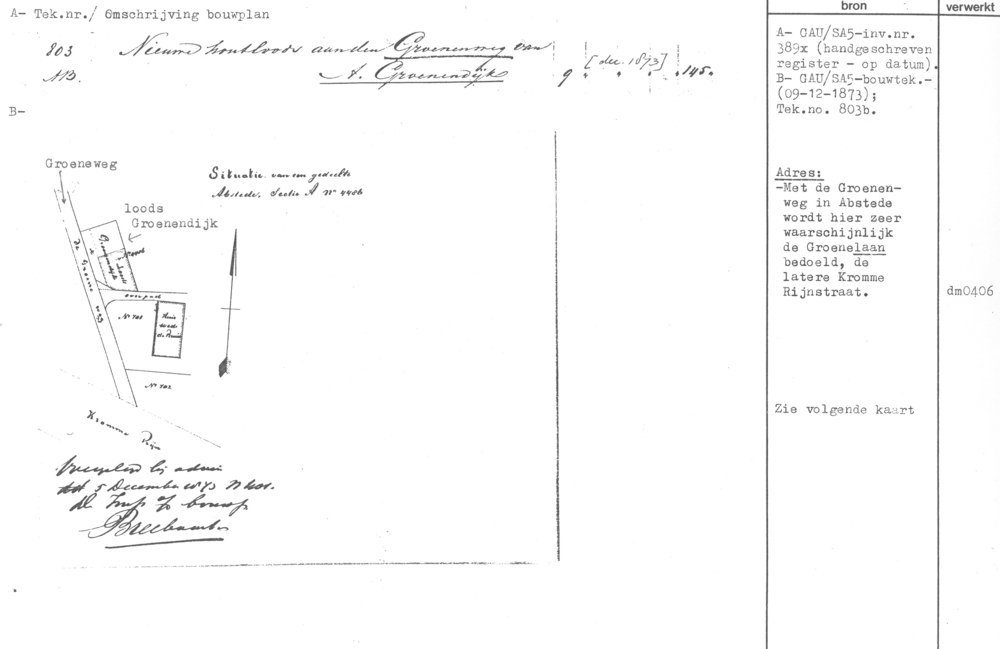 A- Tek.nr./ Omschrijving bouwplan
803 Nieuwe houtloods aan den Groenenweg van
AB. A. Groenendijk 9 [dec. 1873] " " " 145.
B-
Groeneweg
Situatie van een gedeelte
Abstede. Sectie A No 4486
loods
Groenendijk
de Groene weg
Groenendijk
Loods
overpad
No 703
Huis
No 702
Kromme Rijn
bij advies
5 December 1873 No
bron
verwerkt
A- GAU/SA5-inv.nr.
389x (handgeschreven
register - op datum).
B- GAU/SA5-bouwtek.-
(09-12-1873);
Tek.no. 803b.
Adres:
-Met de Groenen-
weg in Abstede
wordt hier zeer
waarschijnlijk
de Groenelaan
bedoeld, de
latere Kromme
Rijnstraat.
dm0406
Zie volgende kaart